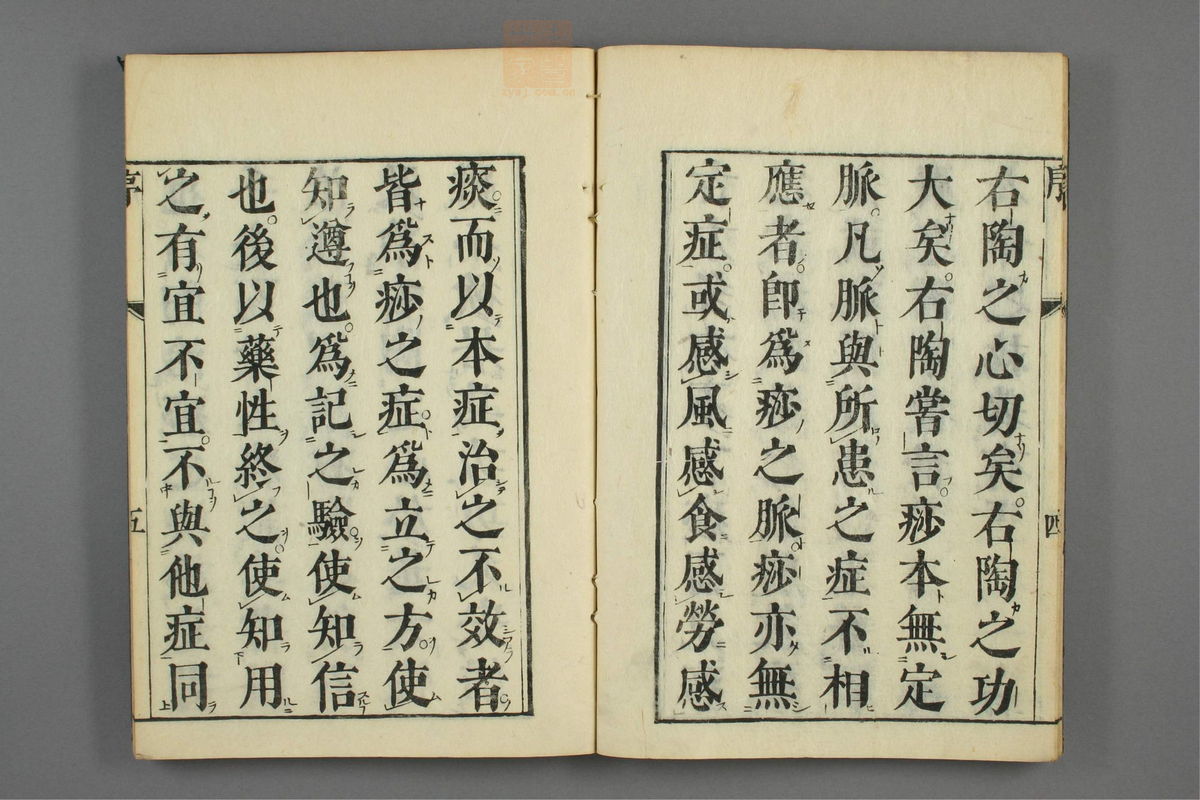 序
四
右陶之心切矣右陶之功
大矣右陶嘗言痧本無定
脈凡脈與所患之症不相
應者卽爲痧之脈痧亦無
定症或感風感食感勞感
痰而以本症治之不效者
皆爲痧之症爲立之方使
知遵也爲記之驗使知信
也後以藥性終之使知用
之有宜不宜不與他症同
序
五